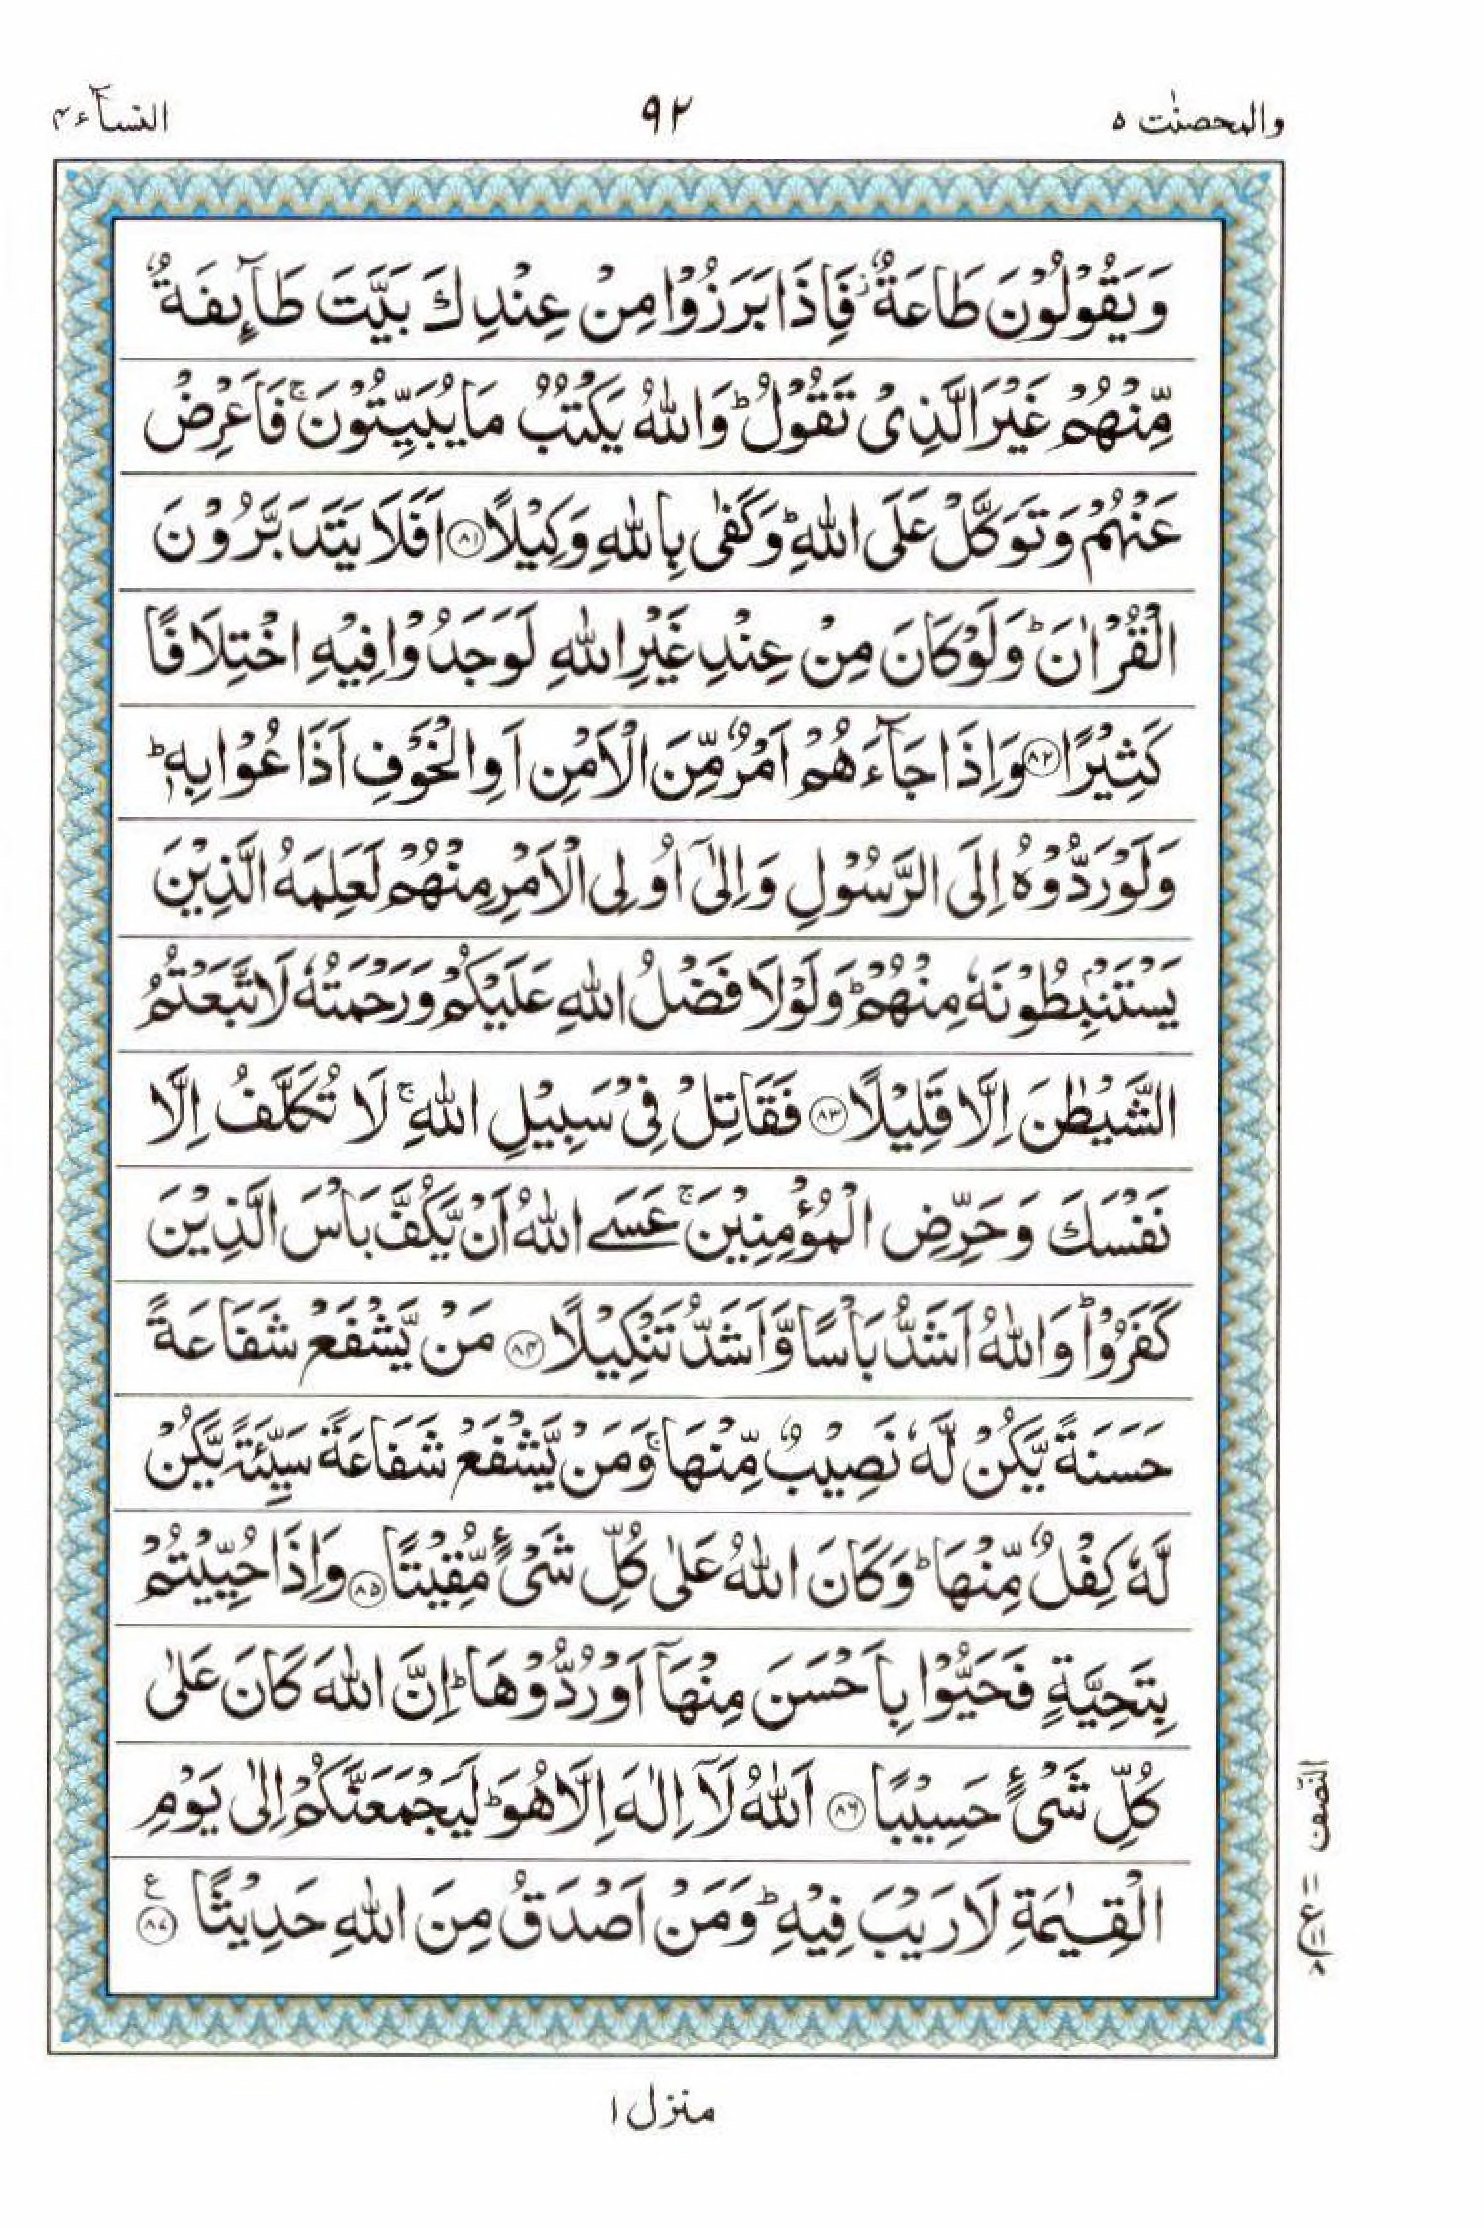 والمحصنٰت ٥
٩٢
النسآء ٤
وَيَقُوۡلُوۡنَ طَاعَةٌ ؗ فَاِذَا بَرَزُوۡا مِنۡ عِنۡدِكَ بَيَّتَ طَآٮِٕفَةٌ
مِّنۡهُمۡ غَيۡرَ الَّذِىۡ تَقُوۡلُ‌ ؕ وَاللّٰهُ يَكۡتُبُ مَا يُبَيِّتُوۡنَ‌ ۚ فَاَعۡرِضۡ
عَنۡهُمۡ وَتَوَكَّلۡ عَلَى اللّٰهِ‌ ؕ وَكَفٰى بِاللّٰهِ وَكِيۡلًا ﴿٨١﴾ اَفَلَا يَتَدَبَّرُوۡنَ
الۡقُرۡاٰنَ‌ ؕ وَلَوۡ كَانَ مِنۡ عِنۡدِ غَيۡرِ اللّٰهِ لَوَجَدُوۡا فِيۡهِ اخۡتِلَافًا
كَثِيۡرًا ﴿٨٢﴾ وَاِذَا جَآءَهُمۡ اَمۡرٌ مِّنَ الۡاَمۡنِ اَوِ الۡخَوۡفِ اَذَاعُوۡا بِهٖ‌ ؕ
وَلَوۡ رَدُّوۡهُ اِلَى الرَّسُوۡلِ وَاِلٰٓى اُولِى الۡاَمۡرِ مِنۡهُمۡ لَعَلِمَهُ الَّذِيۡنَ
يَسۡتَنۡۢبِطُوۡنَهٗ مِنۡهُمۡ‌ؕ وَلَوۡلَا فَضۡلُ اللّٰهِ عَلَيۡكُمۡ وَرَحۡمَتُهٗ لَاتَّبَعۡتُمُ
الشَّيۡطٰنَ اِلَّا قَلِيۡلًا ﴿٨٣﴾ فَقَاتِلۡ فِىۡ سَبِيۡلِ اللّٰهِ‌ ۚ لَا تُكَلَّفُ اِلَّا
نَفۡسَكَ وَحَرِّضِ الۡمُؤۡمِنِيۡنَ‌ ۚ عَسَے اللّٰهُ اَنۡ يَّكُفَّ بَاۡسَ الَّذِيۡنَ
كَفَرُوۡا‌ ؕ وَاللّٰهُ اَشَدُّ بَاۡسًا وَّاَشَدُّ تَنۡكِيۡلًا ﴿٨٤﴾ مَنۡ يَّشۡفَعۡ شَفَاعَةً
حَسَنَةً يَّكُنۡ لَّهٗ نَصِيۡبٌ مِّنۡهَا‌ ۚ وَمَنۡ يَّشۡفَعۡ شَفَاعَةً سَيِّئَةً يَّكُنۡ
لَّهٗ كِفۡلٌ مِّنۡهَا‌ ؕ وَكَانَ اللّٰهُ عَلٰى كُلِّ شَىۡءٍ مُّقِيۡتًا ﴿٨٥﴾ وَاِذَا حُيِّيۡتُمۡ
بِتَحِيَّةٍ فَحَيُّوۡا بِاَحۡسَنَ مِنۡهَاۤ اَوۡ رُدُّوۡهَا‌ ؕ اِنَّ اللّٰهَ كَانَ عَلٰى
كُلِّ شَىۡءٍ حَسِيۡبًا ﴿٨٦﴾ اَللّٰهُ لَاۤ اِلٰهَ اِلَّا هُوَ‌ ؕ لَيَجۡمَعَنَّكُمۡ اِلٰى يَوۡمِ
الۡقِيٰمَةِ لَا رَيۡبَ فِيۡهِ‌ ؕ وَمَنۡ اَصۡدَقُ مِنَ اللّٰهِ حَدِيۡثًا ﴿٨٧﴾ ع
النّصف
١١ ع ١١ ٨
منزل ١